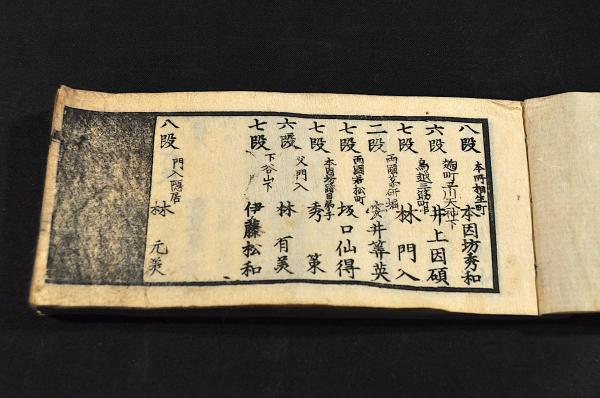 八段 本所相生町 本因坊秀和
六段 麹町平川天神下 井上因碩
七段 鳥越三筋町 林門入
二段 両國薬研堀 安井算英
七段 両國若松町 坂口仙得
七段 本因坊跡目 秀策
六段 父門入 林有美
七段 下谷山下 伊藤松和
八段 門入隠居 林元美